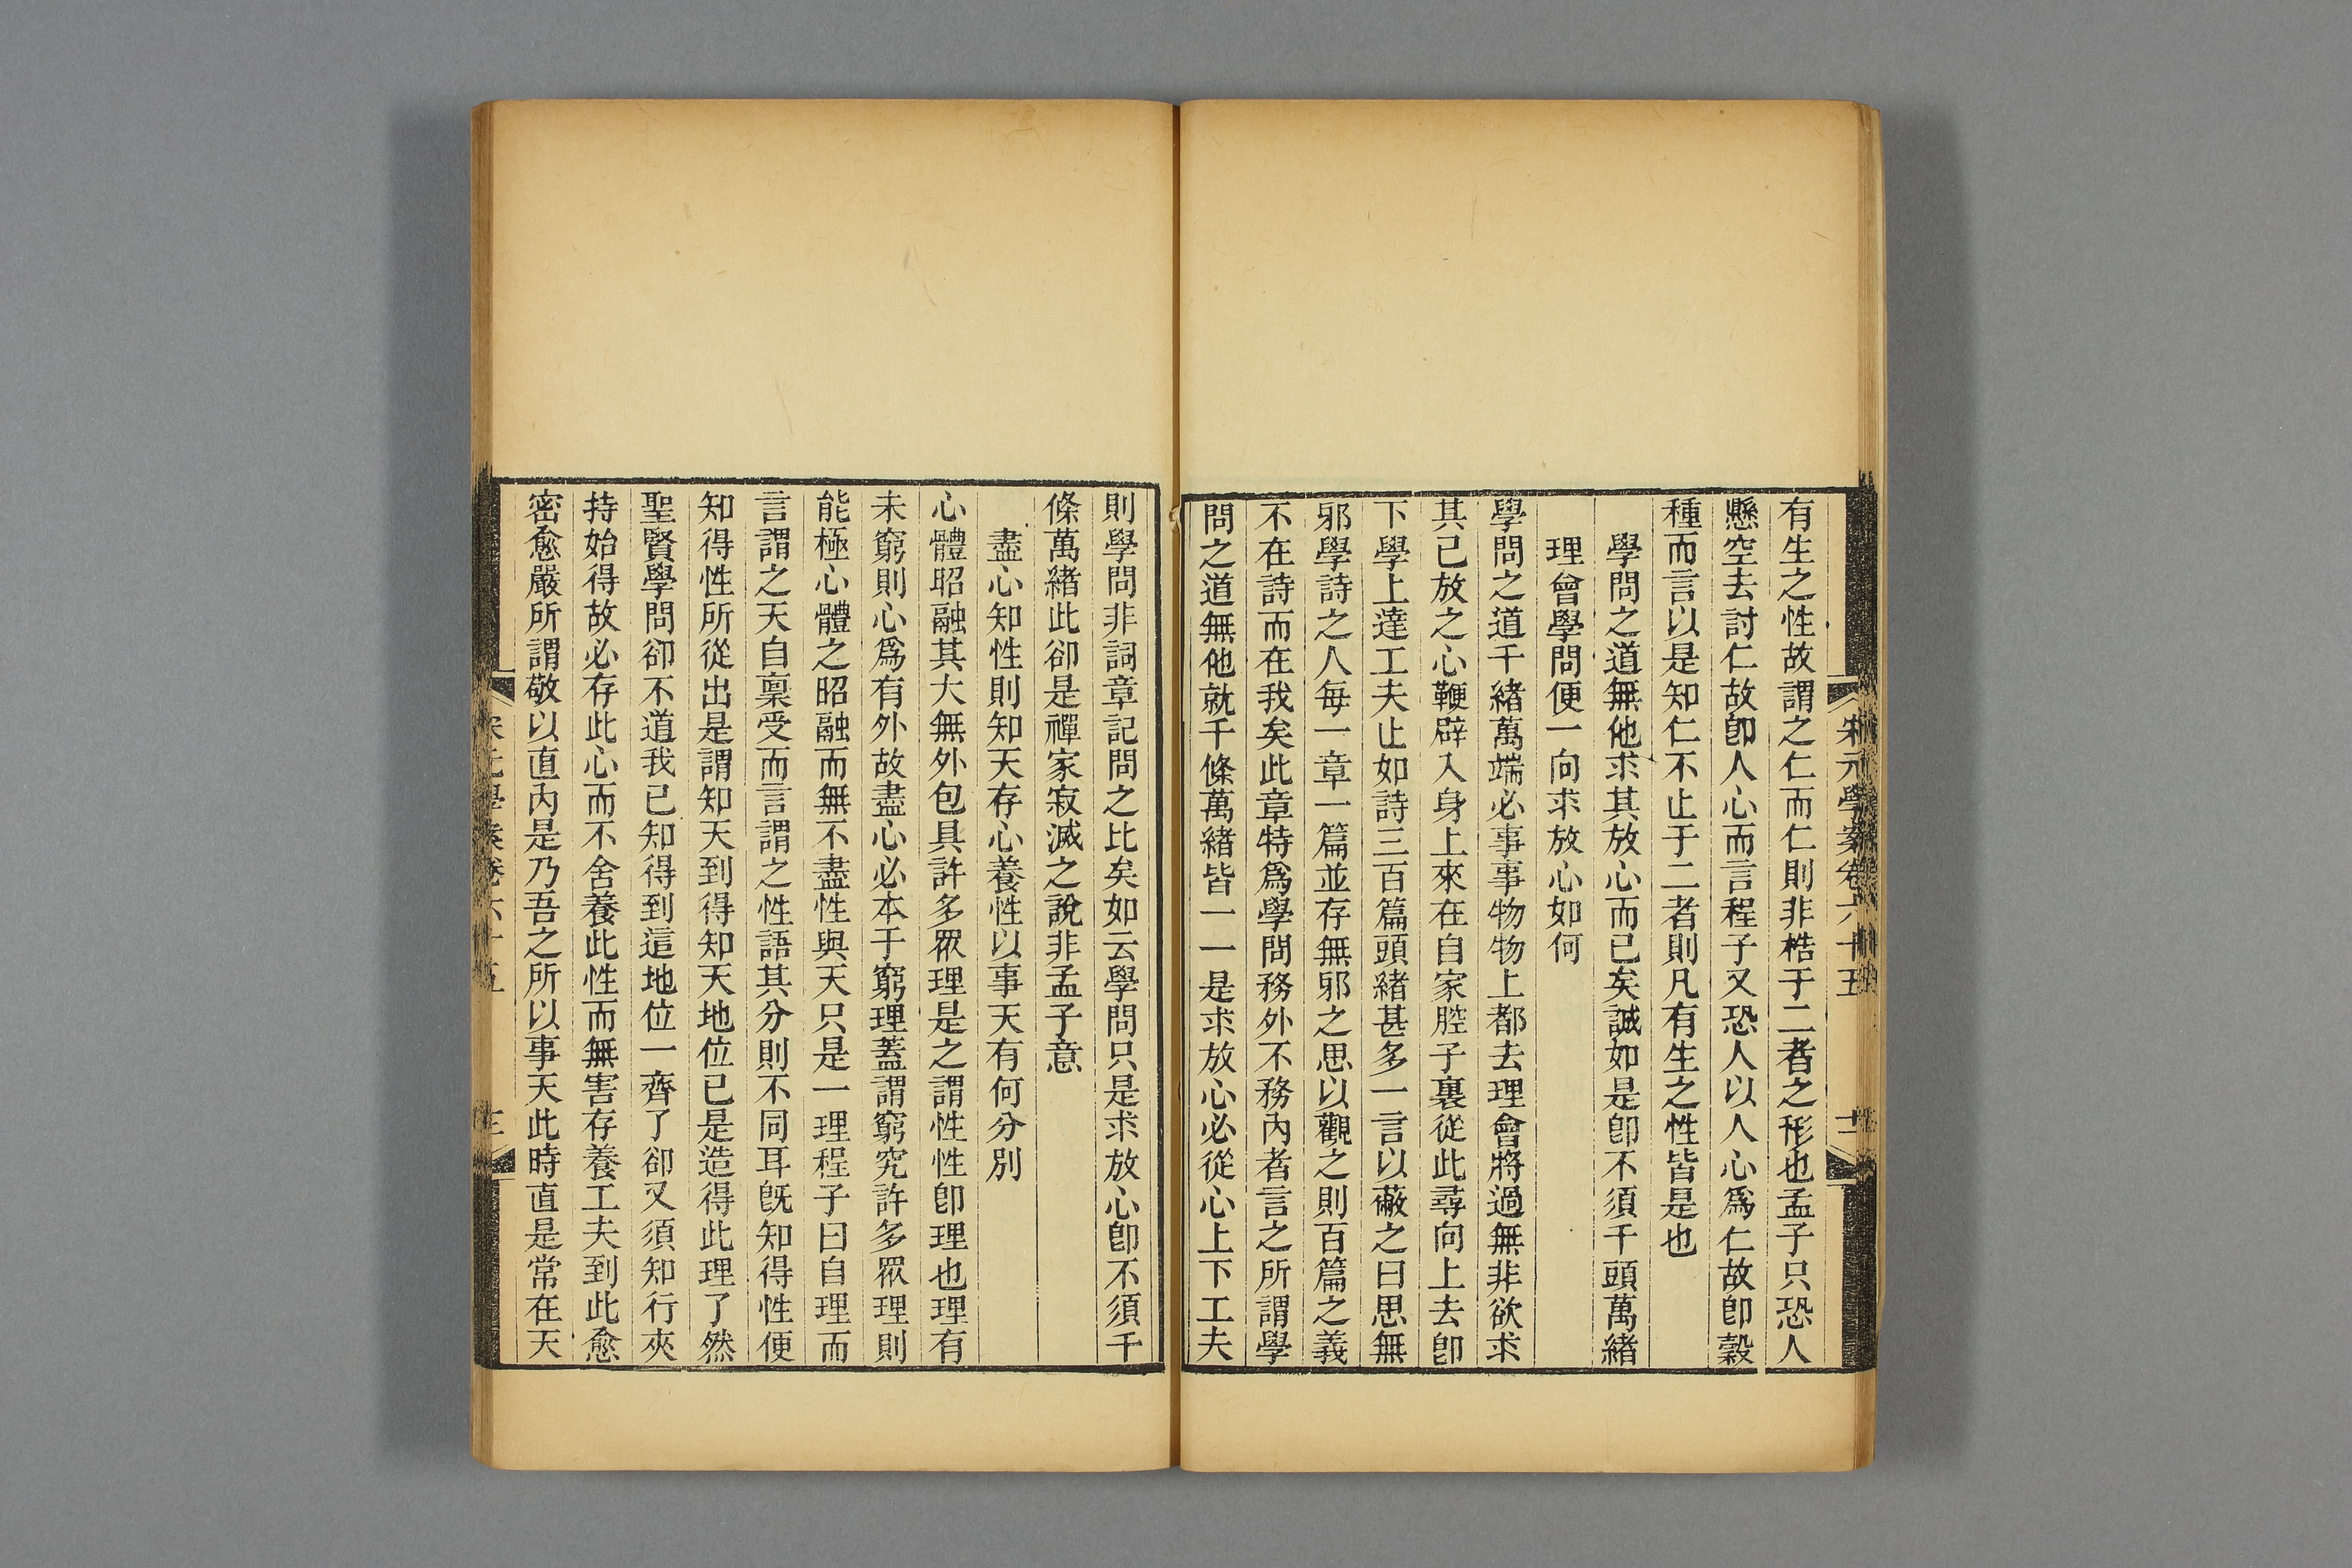 宋元學案卷六十五
十二
有生之性故謂之仁而仁則非梏于二者之形也孟子只恐人
懸空去討仁故卽人心而言程子又恐人以人心爲仁故卽穀
種而言以是知仁不止于二者則凡有生之性皆是也
學問之道無他求其放心而已矣誠如是卽不須千頭萬緒
理會學問便一向求放心如何
學問之道千緒萬端必事事物物上都去理會將過無非欲求
其已放之心鞭辟入身上來在自家腔子裏從此尋向上去卽
下學上達工夫止如詩三百篇頭緒甚多一言以蔽之曰思無
邪學詩之人每一章一篇並存無邪之思以觀之則百篇之義
不在詩而在我矣此章特爲學問務外不務內者言之所謂學
問之道無他就千條萬緒皆一一是求放心必從心上下工夫
則學問非詞章記問之比矣如云學問只是求放心卽不須千
條萬緒此卻是禪家寂滅之說非孟子意
盡心知性則知天存心養性以事天有何分別
心體昭融其大無外包具許多眾理是之謂性性卽理也理有
未窮則心爲有外故盡心必本于窮理蓋謂窮究許多眾理則
能極心體之昭融而無不盡性與天只是一理程子曰自理而
言謂之天自稟受而言謂之性語其分則不同耳旣知得性便
知得性所從出是謂知天到得知天地位已是造得此理了然
聖賢學問卻不道我已知得到這地位一齊了卻又須知行夾
持始得故必存此心而不舍養此性而無害存養工夫到此愈
密愈嚴所謂敬以直內是乃吾之所以事天此時直是常在天
宋元學案卷六十五